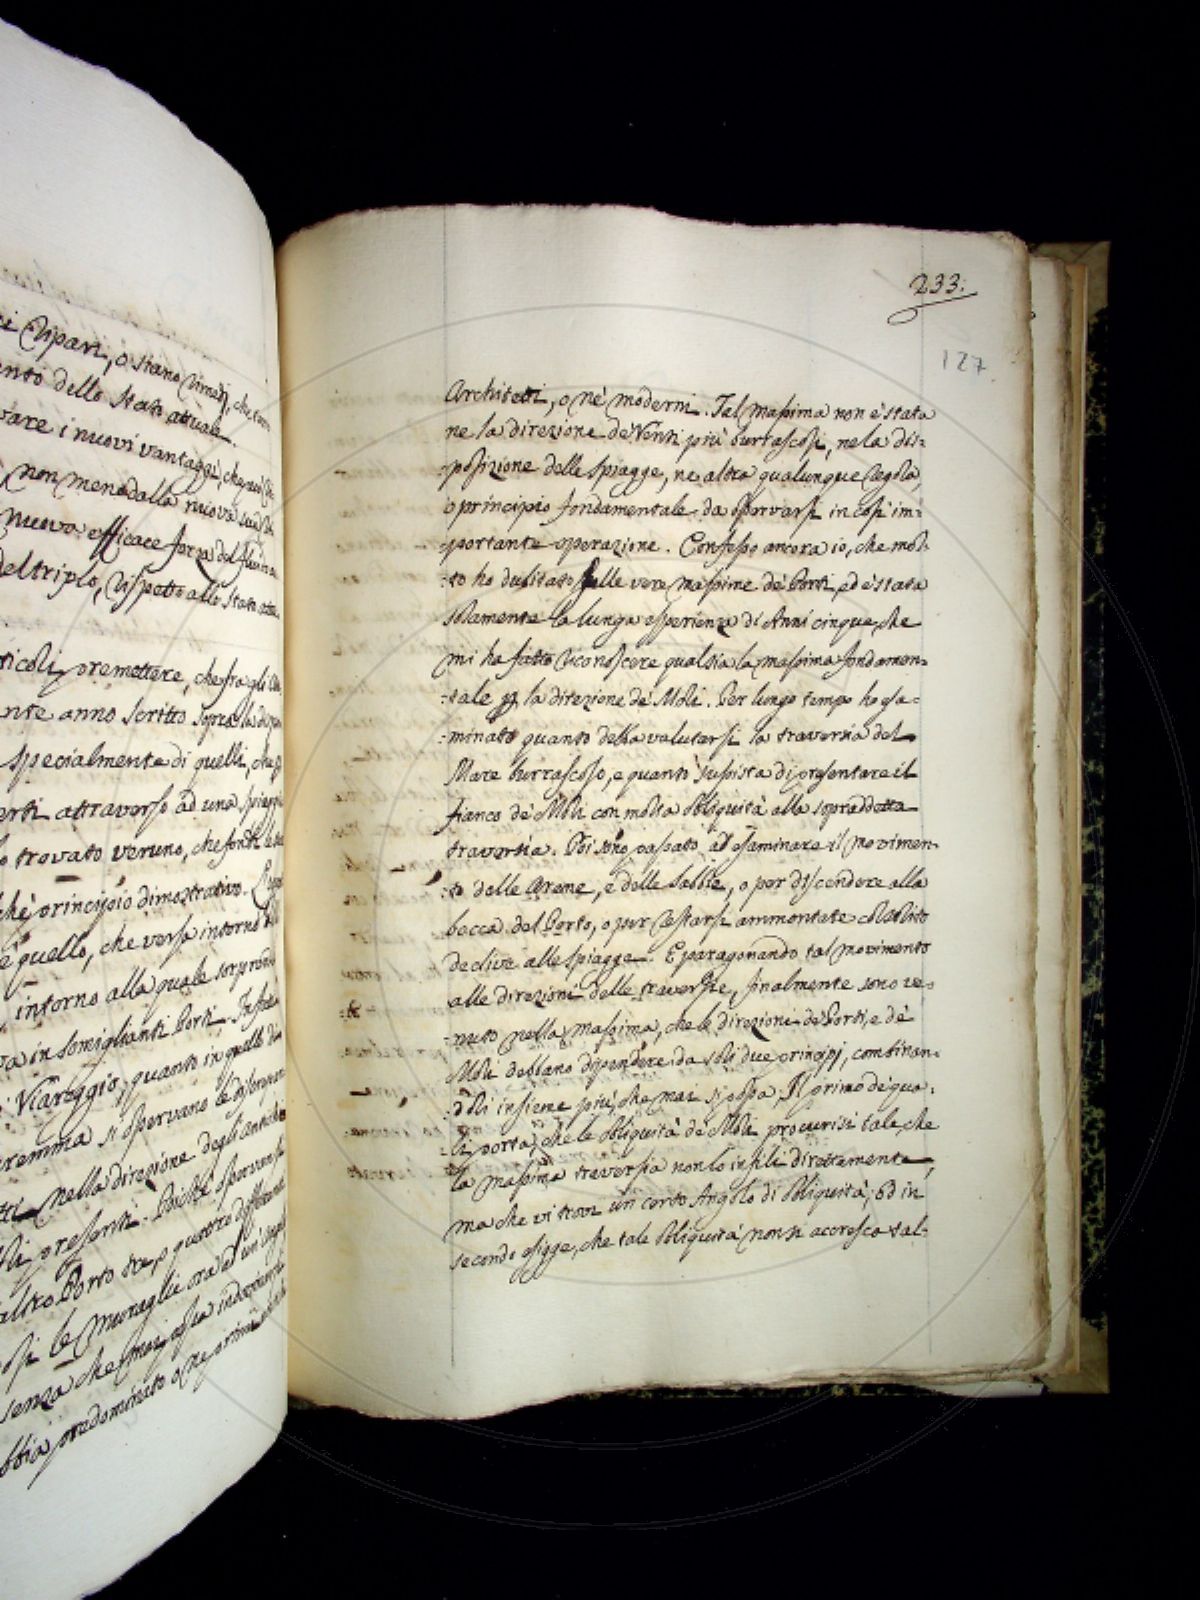 ri ripari, o stano rimedj, che
ento dello Stato attuale.
vare i nuovi vantaggi, che
non meno dalla nuova sua
nuova efficace forza del
del triplo, rispetto allo Stato
ticoli premettere, che fra gli
ente anno scritto sopra la
specialmente di quelli, che
erti attraverso ad una spiaggia
o trovato veruno, che fondi
chè principio dimostrativo.
è quello, che versa intorno
intorno alla quale
va in somiglianti Porti.
Viareggio, quanto in quello di
aremma si osservano le
tti nella direzione degli antichi
li presenti. Poichè osservansi
altro Porto tre, o quattro differenti
osi le Muraglie ora ad un'
senza che mai possa indovinarsi
bbia predominato
233.
127.
Architetti, o nè moderni. Tal massima non è stata
ne la direzione de' Venti più burrascosi, ne la dis:
:posizione delle spiagge, ne altra qualunque regola,
o principio fondamentale da osservarsi in così im:
:portante operazione. Confesso ancora io, che mol:
:to ho dubitato sulle vere massime de' Porti, ed è stata
solamente la lunga esperienza di Anni cinque, che
mi ha fatto riconoscere qual sia la massima fondamen:
:tale p la direzione de' Moli. Per lungo tempo ho esa:
:minato quanto debba valutarsi la traversia del
Mare burrascoso, e quanto sussista di presentare il
fianco de' Moli con molta obliquità alla sopraddetta
traversia. Poi sono passato ad esaminare il movimen:
:to delle Arene, e delle Sabbie, o per discendere alla
bocca del Porto, o per restarsi ammontate col solito
declive alle spiagge. E paragonando tal movimento
alle direzioni delle traversie, finalmente sono ve:
:nuto nella massima, che le direzioni de' Porti, e de'
Moli debbano dipendere da soli due principj, combinan:
:doli insieme più, che mai si possa. Il primo de' qua:
:li porta, che le obliquità de' Moli procurisi tale, che
la massima traversia non lo infili direttamente,
ma che vi trovi un certo Angolo di obliquità; Ed in
secondo esigge, che tale obliquità non si accresca tal: